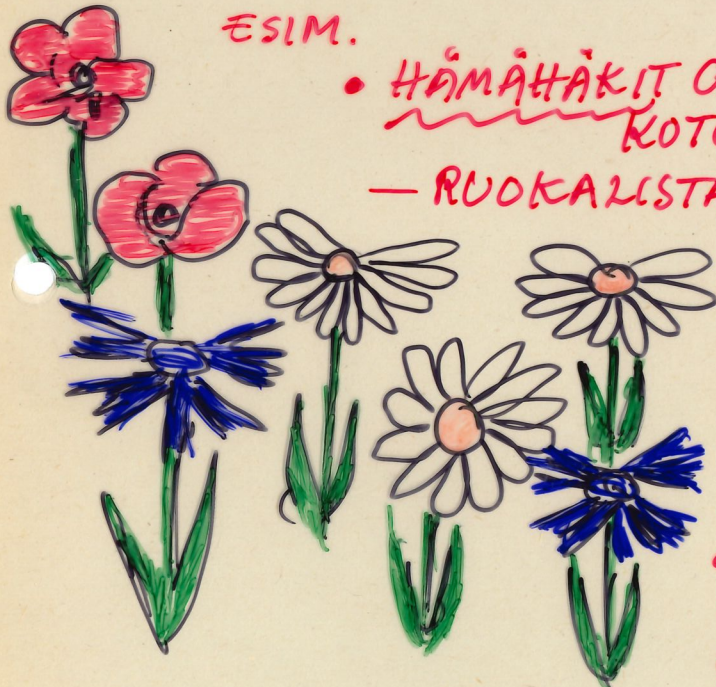 ESIM.
• HÄMÄHÄKIT
— RUOKALISTA